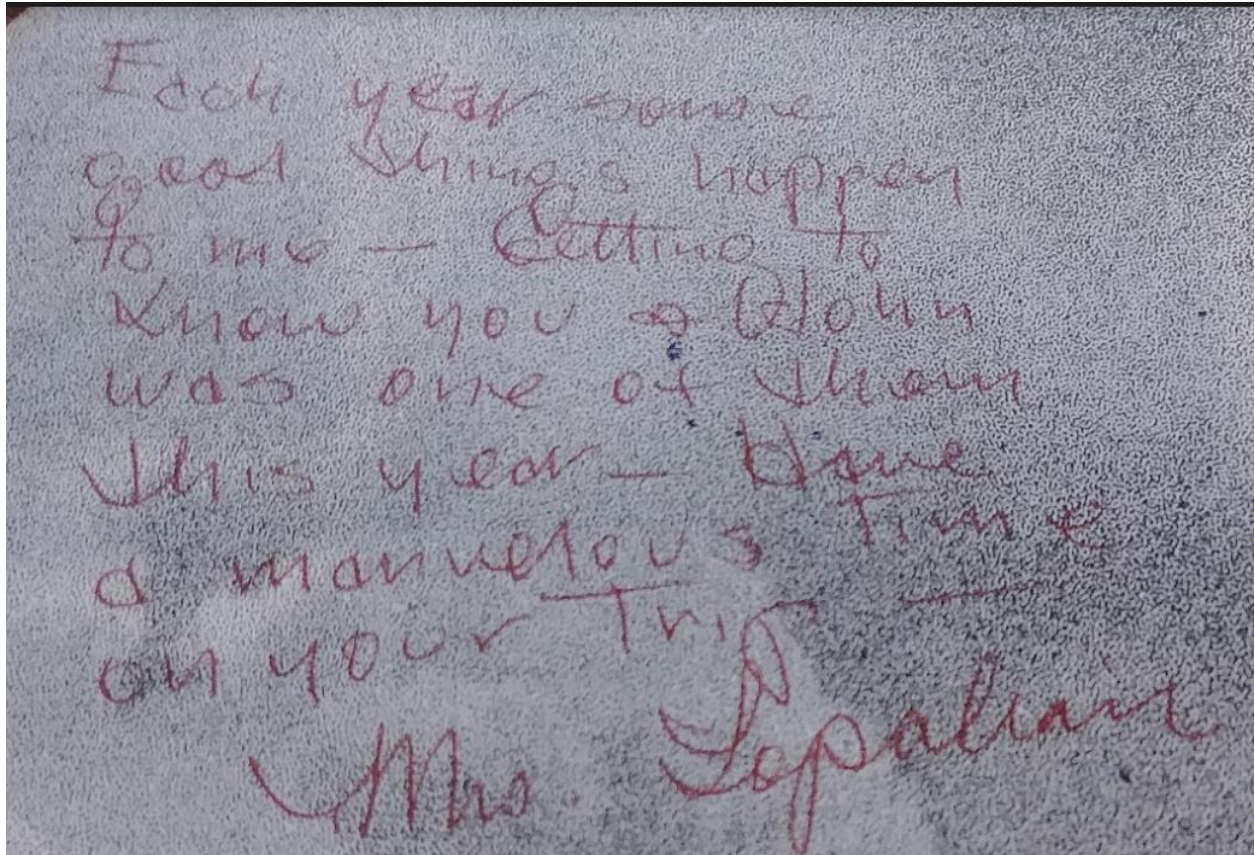 Each year some
good things happen
to me — Getting to
know you & John
was one of them
this year — Have
a marvelous Time
on your Trip —
Mrs.